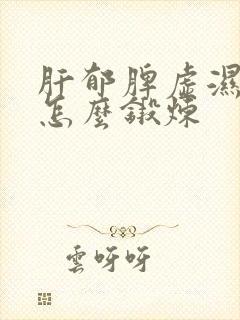 肝郁脾虛濕
怎麼鍛煉
雲呀呀